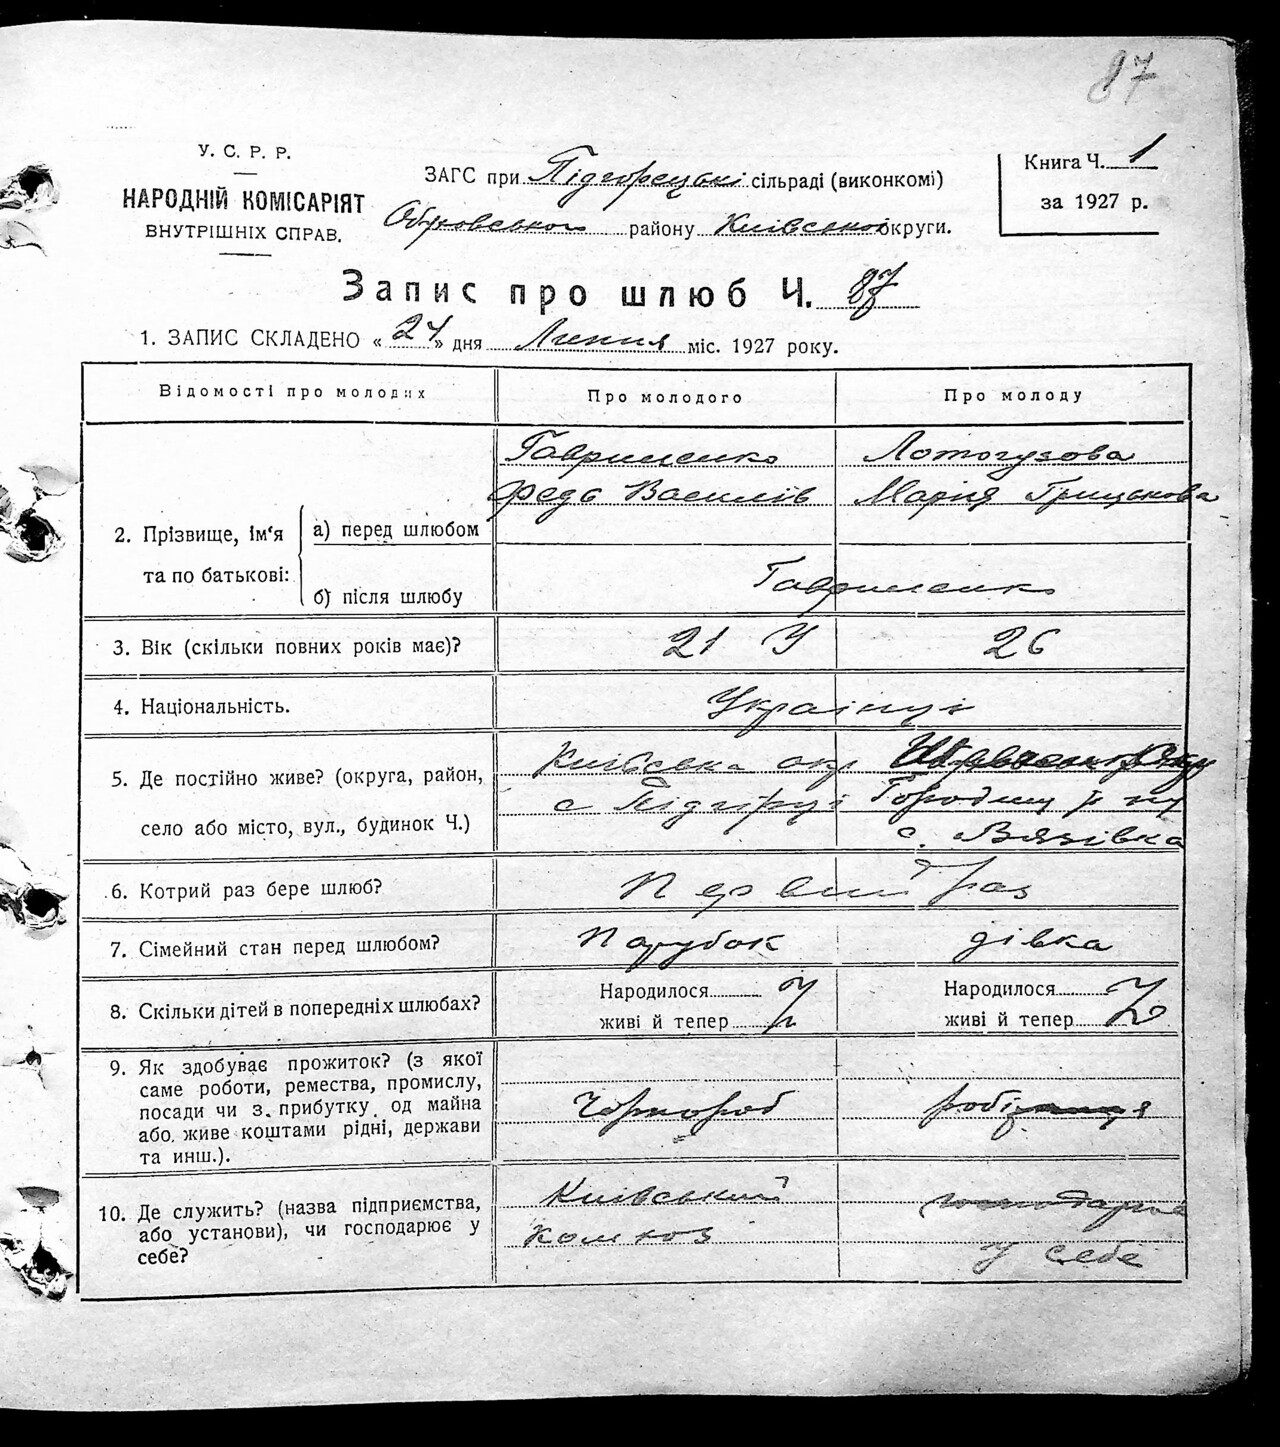 87
У. С. Р. Р.
НАРОДНІЙ КОМІСАРІЯТ
ВНУТРІШНІХ СПРАВ.
ЗАГС при Підгорецькі сільраді (виконкомі)
Обуховського району Київської округи.
Книга Ч. 1
за 1927 р.
Запис про шлюб Ч. 87
1. ЗАПИС СКЛАДЕНО « 24 » дня Липня міс. 1927 року.
Відомості про молодих
Про молодого
Про молоду
2. Прізвище, ім‘я та по батькові:
а) перед шлюбом
Гавриленко
Федь Василів
Лотогузова
Марія Грицькова
б) після шлюбу
Гавриленко
3. Вік (скільки повних років має)?
21
26
4. Національність.
Українці
5. Де постійно живе? (округа, район,
село або місто, вул., будинок Ч.)
Київська окр
с Підгірці
с. Вязівка
6. Котрий раз бере шлюб?
Первий раз
7. Сімейний стан перед шлюбом?
Парубок
дівка
8. Скільки дітей в попередніх шлюбах?
Народилося
живі й тепер
Народилося
живі й тепер
9. Як здобуває прожиток? (з якої
саме роботи, ремества, промислу,
посади чи з прибутку од майна
або живе коштами рідні, держави
та инш.).
Чорнороб
10. Де служить? (назва підприємства,
або установи), чи господарює у
себе?
Київський
комхоз
у себе